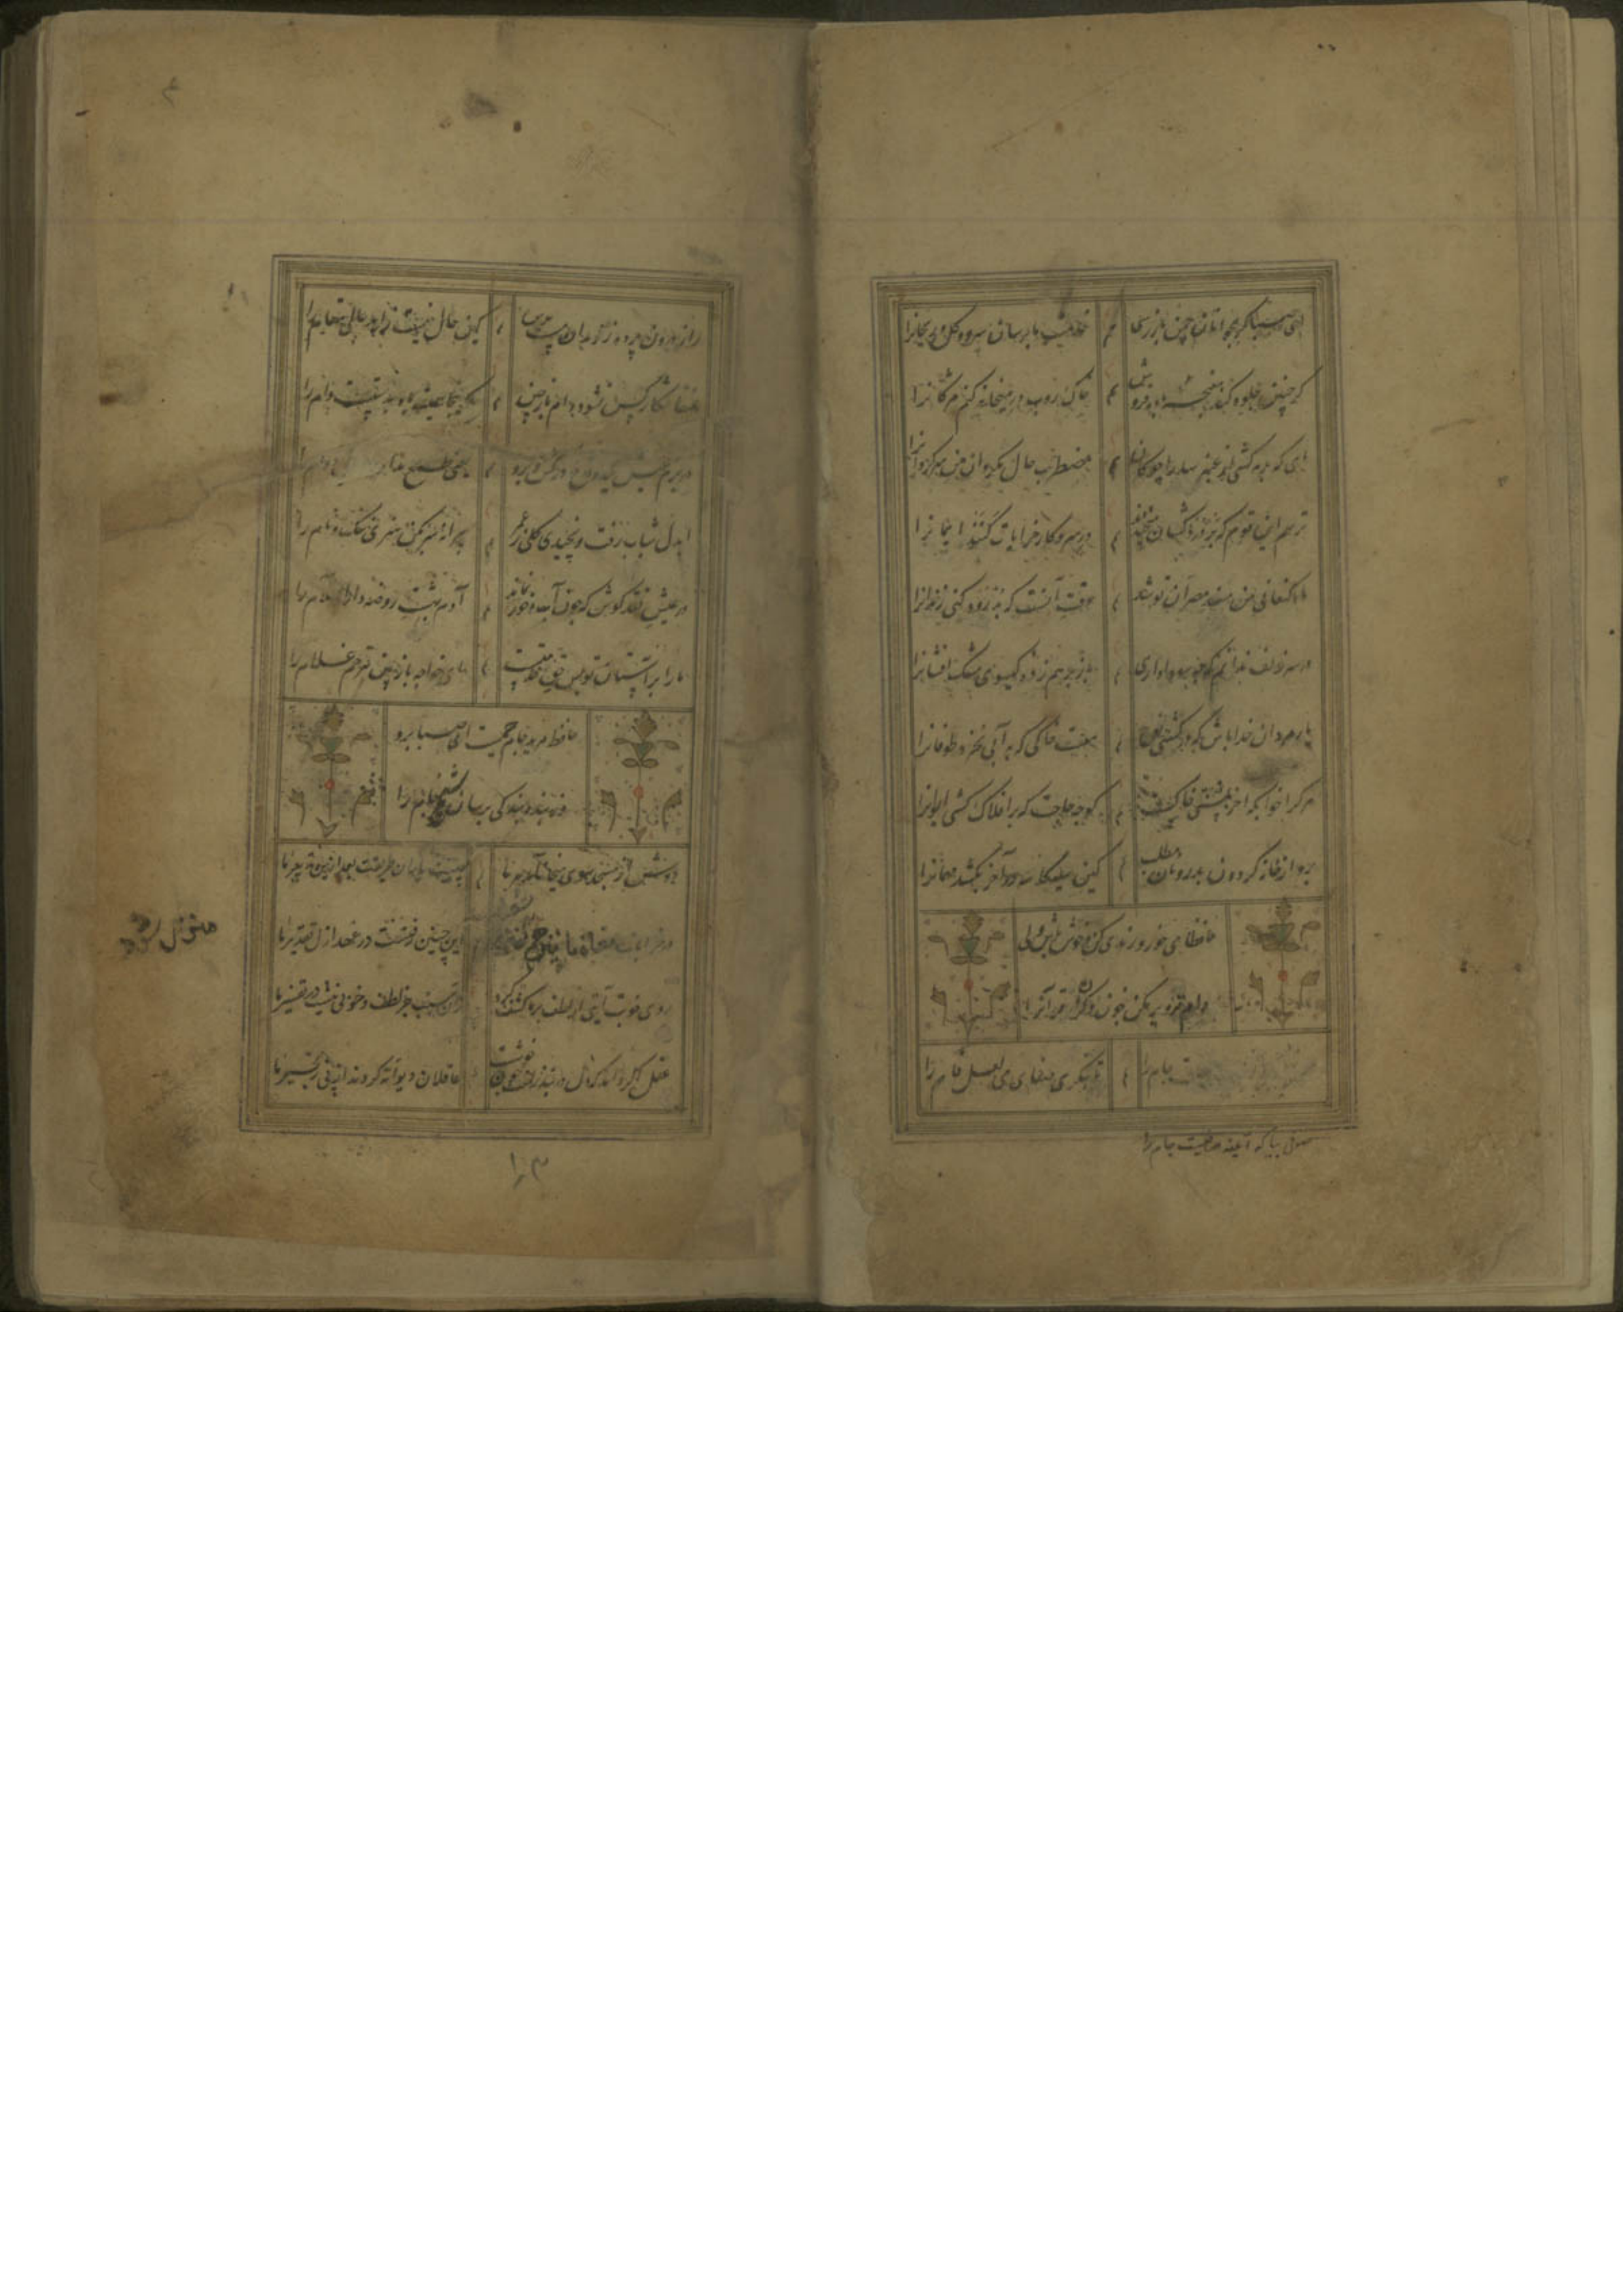 ای صبا گر بجوانان چمن باز رسی
خدمت ما برسان سرو و گل و ریحانرا
گر چنین جلوه کند مغبچه باده فروش
خاک روب در میخانه کنم مژگانرا
ای که بر مه کشی از عنبر سارا چوگان
مضطرب حال مگردان من سرگردانرا
ترسم این قوم که بر دردکشان میخندند
در سر و کار خرابات کنند ایمانرا
ماه کنعانی من مسند مصر آن تو شد
وقت آنست که بدرود کنی زندانرا
در سر زلف ندانم که چه سودا داری
باز بر هم زده گیسوی مشک افشانرا
یار مردان خدا باش که در کشتی نوح
هست خاکی که به آبی نخرد طوفانرا
هر کرا خوابگه آخر مشتی خاکست
گو چه حاجت که بر افلاک کشی ایوانرا
برو از خانه گردون بدر و نان مطلب
کین سیه کاسه در آخر بکشد مهمانرا
حافظا می خور و رندی کن و خوش باش ولی
دام تزویر مکن چون دگران قرآنرا
جام را
تا بنگری صفای می لعل فام را
صوفی بیا که آینه صافیست جام را
راز درون پرده ز رندان مست پرس
کین حال نیست زاهد عالی مقام را
عنقا شکار کس نشود دام باز چین
کانجا همیشه باد بدستست دام را
در بزم عیش یک دو قدح درکش و برو
یعنی طمع مدار دوام را
ایدل شباب رفت و نچیدی گلی ز عمر
پیرانه سر مکن هنری ننگ و نام را
در عیش نقد کوش که چون آبخور نماند
آدم بهشت روضه دار السلام را
ما را بر آستان تو بس حق خدمتست
ای خواجه باز بین بترحم غلام را
حافظ مرید جام جمست ای صبا برو
وز بنده بندگی برسان شیخ جام را
دوش از مسجد سوی میخانه آمد پیر ما
چیست یاران طریقت بعد ازین تدبیر ما
در خرابات مغان ما نیز
این چنین رفتست در عهد ازل تقدیر ما
روی خوبت آیتی از لطف بر ما کشف کرد
زان سبب جز لطف و خوبی نیست در تفسیر ما
عقل اگر داند که دل در بند زلفش چون خوشست
عاقلان دیوانه گردند از پی زنجیر ما
منزل شود
۱۰۳